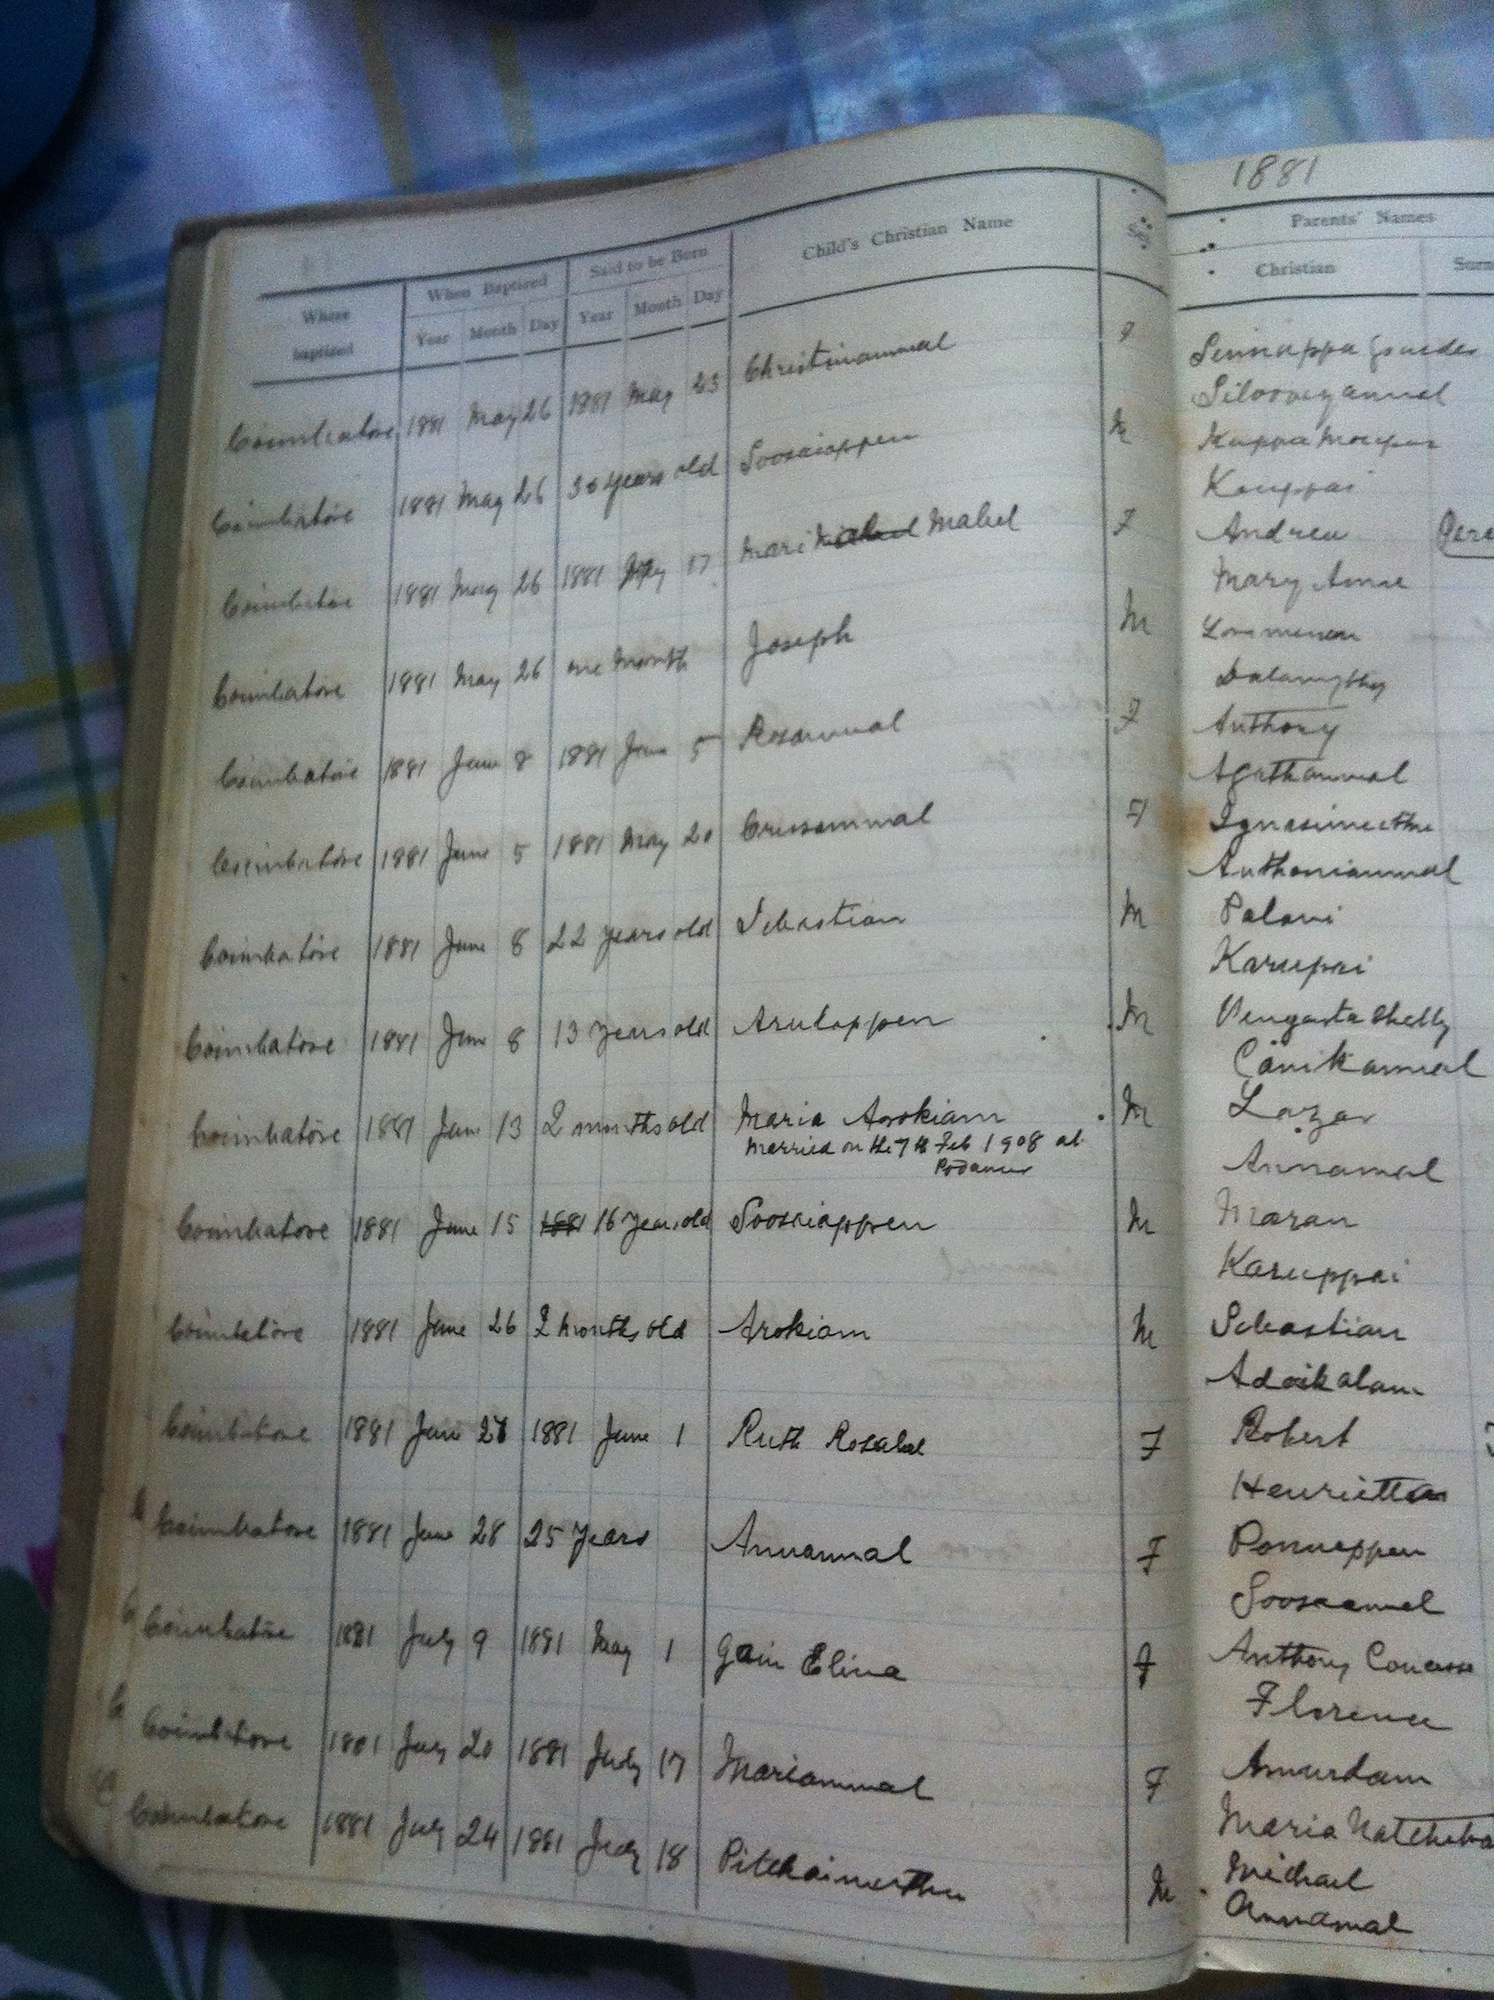 1881
Where baptized
When Baptized
Said to be Born
Child's Christian Name
Sex
Parents' Names
Year Month Day Year Month Day
Christian
Coimbatore 1881 May 26 1881 May 23 Christinammal F Sinnappa
Coimbatore 1881 May 26 30 years old Soosaiappen M Kuppa
Kauppai
Coimbatore 1881 May 26 1881 May 17 Mari Mabel F Andrew
Mary Anne
Coimbatore 1881 May 26 one month Joseph M
Coimbatore 1881 June 8 1881 June 5 Rosammal F Anthony
Agathammal
Coimbatore 1881 June 5 1881 May 20 Crussammal F Ignasimuthu
Anthoniammal
Coimbatore 1881 June 8 22 years old Sebastian M Palani
Karupai
Coimbatore 1881 June 8 13 years old Arulappen M Vengasta Chetty
Canikammal
Coimbatore 1881 June 13 2 months old Maria Arokiam M Lazar
Married on the 7th Feb 1908 at Podanur
Annamal
Coimbatore 1881 June 15 1881 16 years old Soosaiappen M Maran
Karuppai
Coimbatore 1881 June 26 2 months old Arokiam M Sebastian
Adaikalam
Coimbatore 1881 June 27 1881 June 1 Ruth Rosabel F Robert
Henrietta
Coimbatore 1881 June 28 25 years Annammal F Ponnappen
Soosaamal
Coimbatore 1881 July 9 1881 May 1 Elina F Anthony
Florence
Coimbatore 1881 July 20 1881 July 17 Mariammal F Amurdam
Maria
Coimbatore 1881 July 24 1881 July 18 Pitchaimuthu M Michael
Annamal